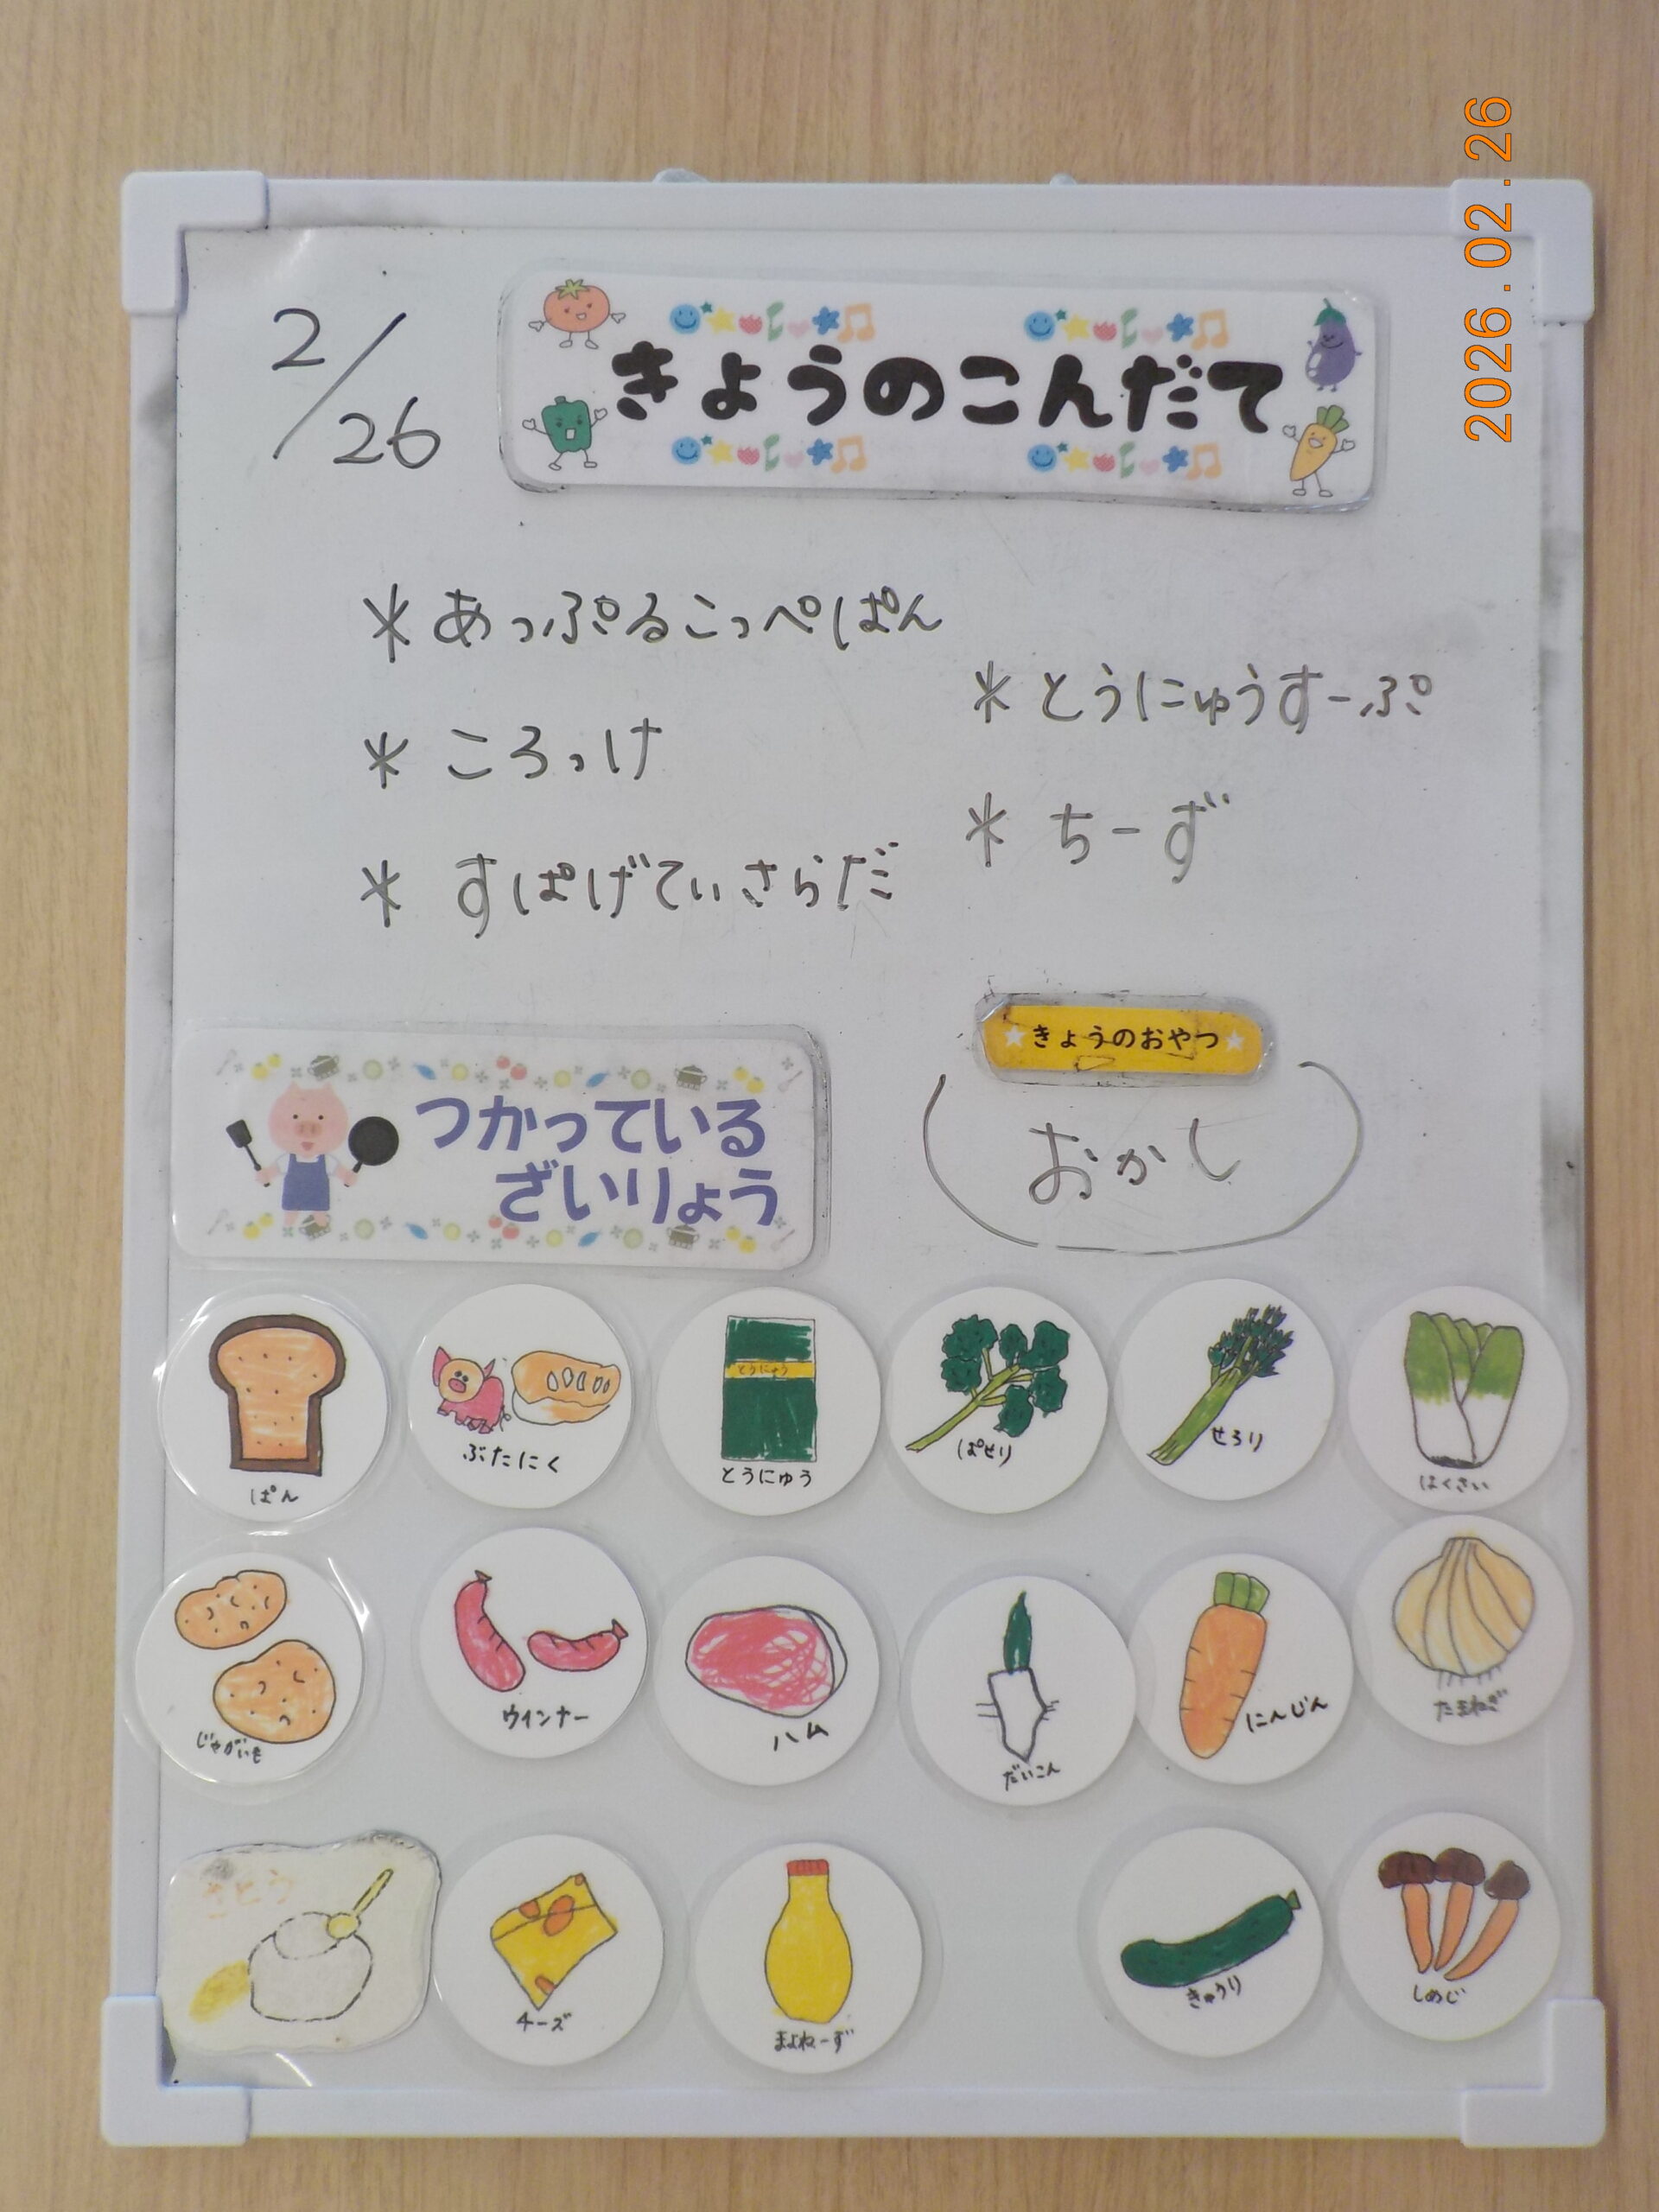 2026.02.26
2/26
きょうのこんだて
* あっぷるこっぺぱん
* ころっけ
* すぱげてぃさらだ
* とうにゅうすーぷ
* ちーず
きょうのおやつ
おかし
つかっている
ざいりょう
ぱん
ぶたにく
とうにゅう
とうにゅう
ぱせり
せろり
はくさい
じゃがいも
ウインナー
ハム
だいこん
にんじん
たまねぎ
さとう
チーズ
まよねーず
きゅうり
しめじ